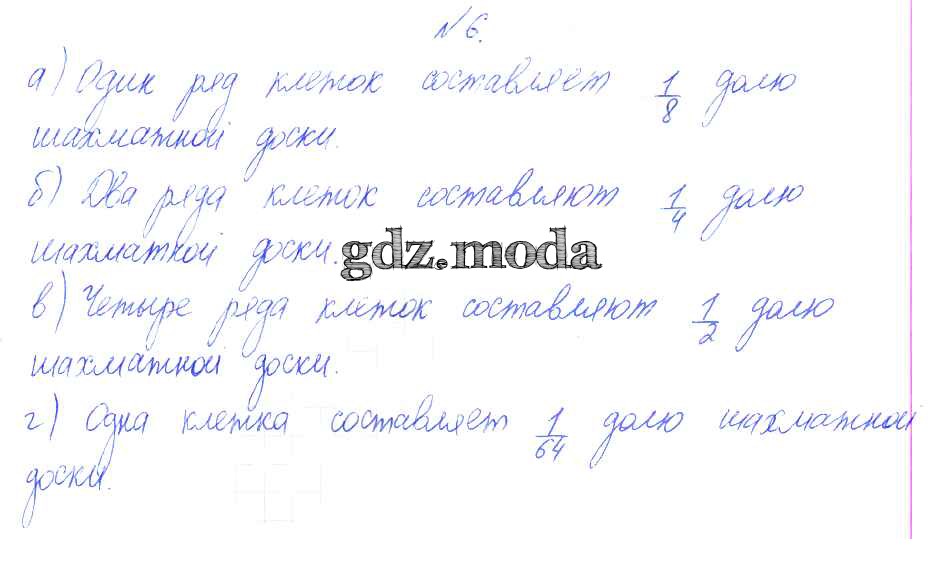 № 6.
а) Один ряд клеток составляет 1/8 долю
шахматной доски.
б) Два ряда клеток составляют 1/4 долю
шахматной доски.
gdz.moda
в) Четыре ряда клеток составляют 1/2 долю
шахматной доски.
г) Одна клетка составляет 1/64 долю шахматной
доски.